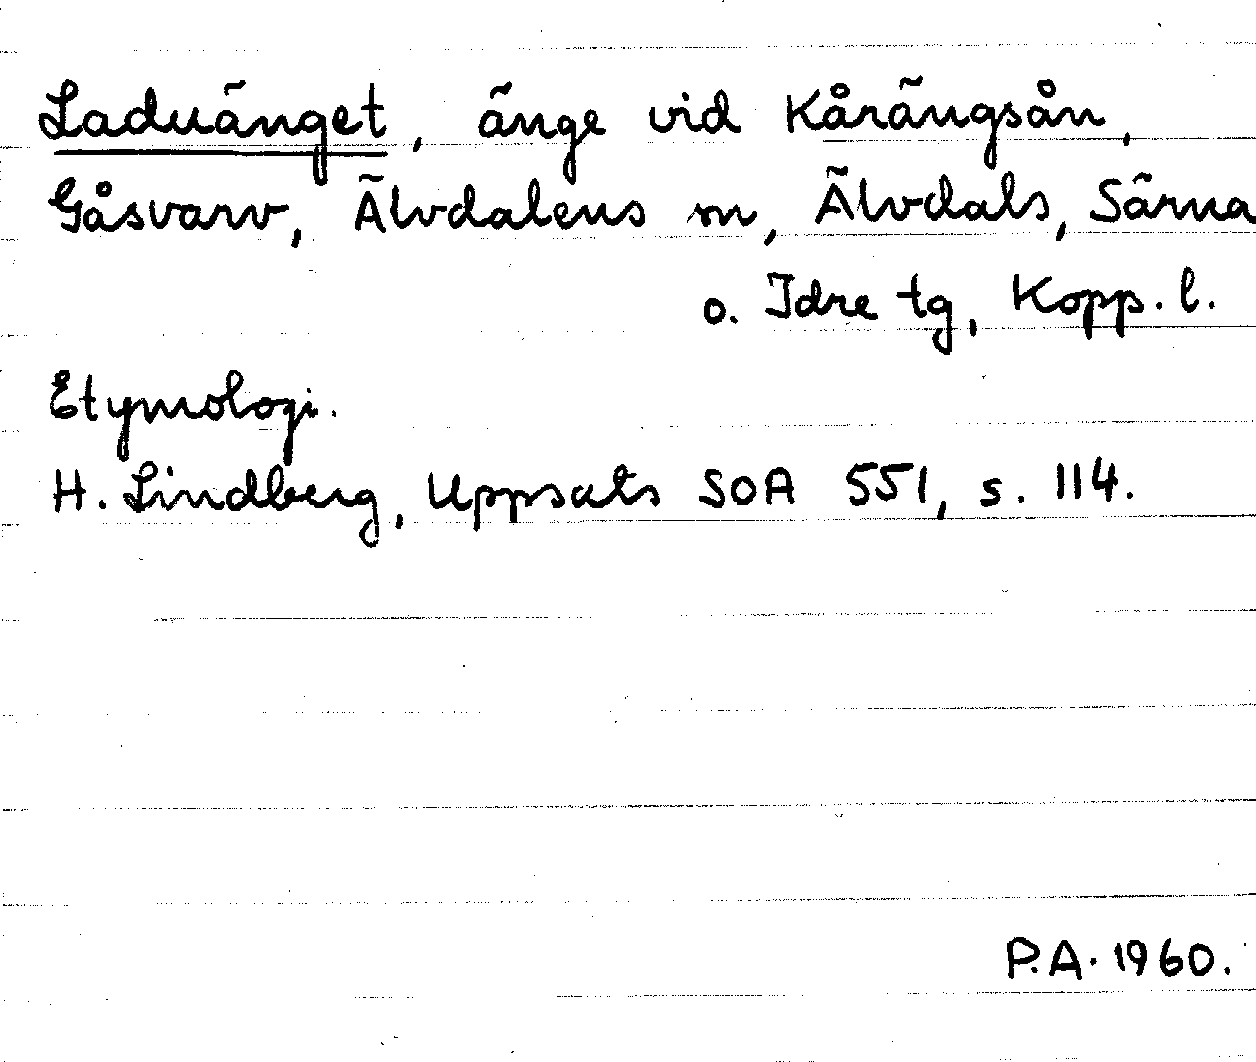 Laduänget, änge vid Kårängsån,
Gåsvarv, Älvdalens sn, Älvdals, Särna
o. Idre tg, Kopp. l.
Etymologi.
H. Lindberg, Uppsats SOA 551, s. 114.
P.A. 1960.